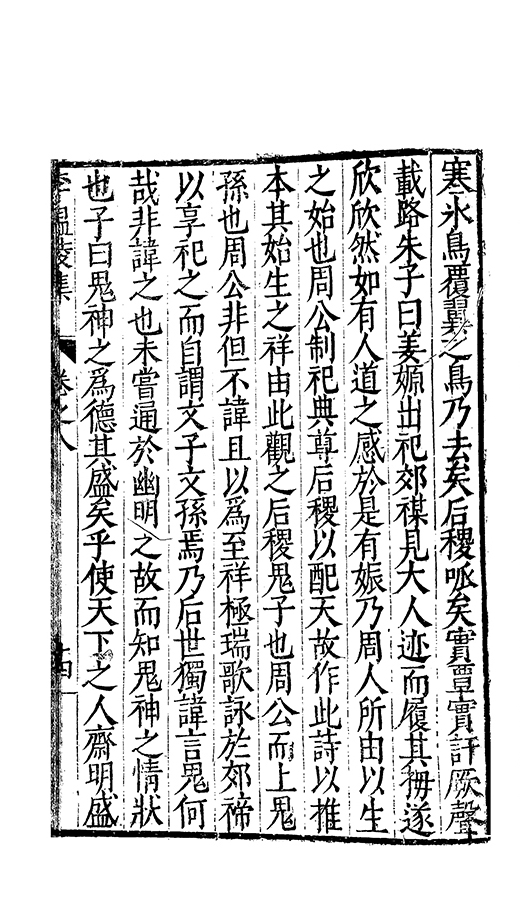 寒氷鳥覆翼之鳥乃去矣后稷呱矣實覃實訏厥聲
載路朱子曰姜嫄出祀郊禖見大人迹而履其拇遂
欣欣然如有人道之感於是有娠乃周人所由以生
之始也周公制祀典尊后稷以配天故作此詩以推
本其始生之祥由此觀之后稷鬼子也周公而上鬼
孫也周公非但不諱且以爲至祥極瑞歌詠於郊禘
以享祀之而自謂文子文孫焉乃后世獨諱言鬼何
哉非諱之也未嘗通於幽明之故而知鬼神之情狀
也子曰鬼神之爲德其盛矣乎使天下之人齋明盛
李溫陵集 卷之八 十四